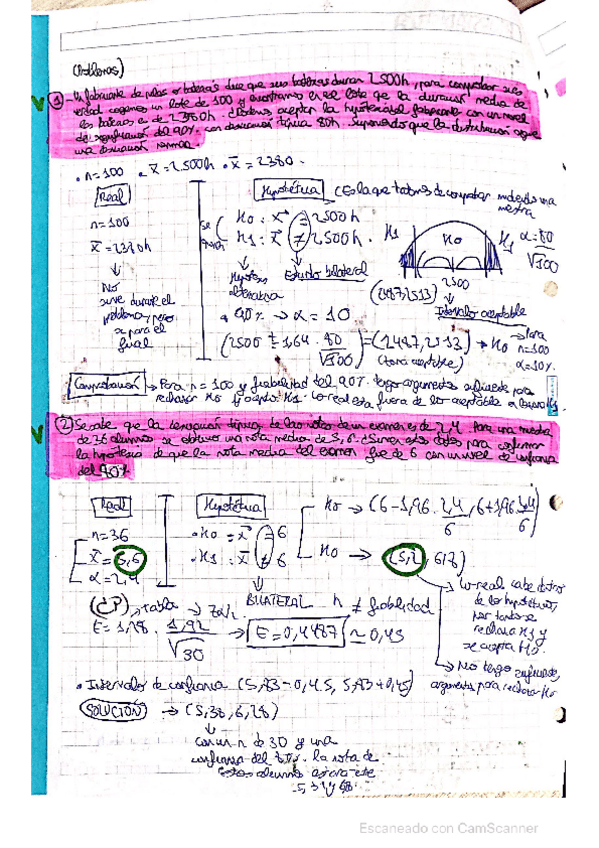 (Problemas)
1 Un fabricante de pilas o baterías dice que sus baterías duran 2.500h, para comprobar si es
verdad cogemos un lote de 100 y encontramos en el lote que la duración media de
las baterías es de 2380h. ¿Debemos aceptar la hipótesis del fabricante con un nivel
de significación del 90% con desviación típica 80h. Suponiendo que la distribución sigue
una distribución normal
• n=100 • x̄=2.500h • x̄=2380.
Real
n=100
x̄=2380h
No
sirve durante el
problema, pero
si para el
final
Hipotética (Es la que tratamos de comprobar mediante una
muestra
H0: x̄ = 2500h
H1: x̄ ≠ 2500h.
H1 H0 H1
α=80
√100
2500
(2487,2513)
Intervalo aceptable
Hipótesis
alternativa
Estudio bilateral
• 90% → α = 10
(2500 ± 1,64 · 80/√100) = (2487,2513) → H0
(zona aceptable)
Para
n=100
α=10%
Comprobación → Para n=100 y fiabilidad del 90% tengo argumentos suficientes para
rechazar H0 y acepto H1. Lo real esta fuera de lo aceptable
2 Se sabe que la desviación típica de las notas de un examen es de 2,4 Para una muestra
de 36 alumnos se obtuvo una nota media de 5,6. ¿Sirven estos datos para confirmar
la hipótesis de que la nota media del examen fue de 6 con un nivel de confianza
del 90%
Real
n=36
x̄=5,6
α=2,4
Hipotética
• H0: x̄ = 6
• H1: x̄ ≠ 6
BILATERAL
H0 → (6-1,96 · 2,4/6, 6+1,96 · 2,4/6)
H0 → (5,2, 6,8)
n ≠ fiabilidad
Lo real cabe dentro
de lo hipotético,
por tanto se
rechaza H1 y
se acepta H0.
No tengo suficientes
argumentos para rechazar H0
tabla →
E = 1,28 · 1,92/√30 → E=0,4487 ≃ 0,45
• Intervalo de confianza (5,83-0,45, 5,83+0,45)
SOLUCIÓN → (5,38, 6,28)
con un n de 30 y una
confianza del la nota de
estos alumnos estará entre
Escaneado con CamScanner